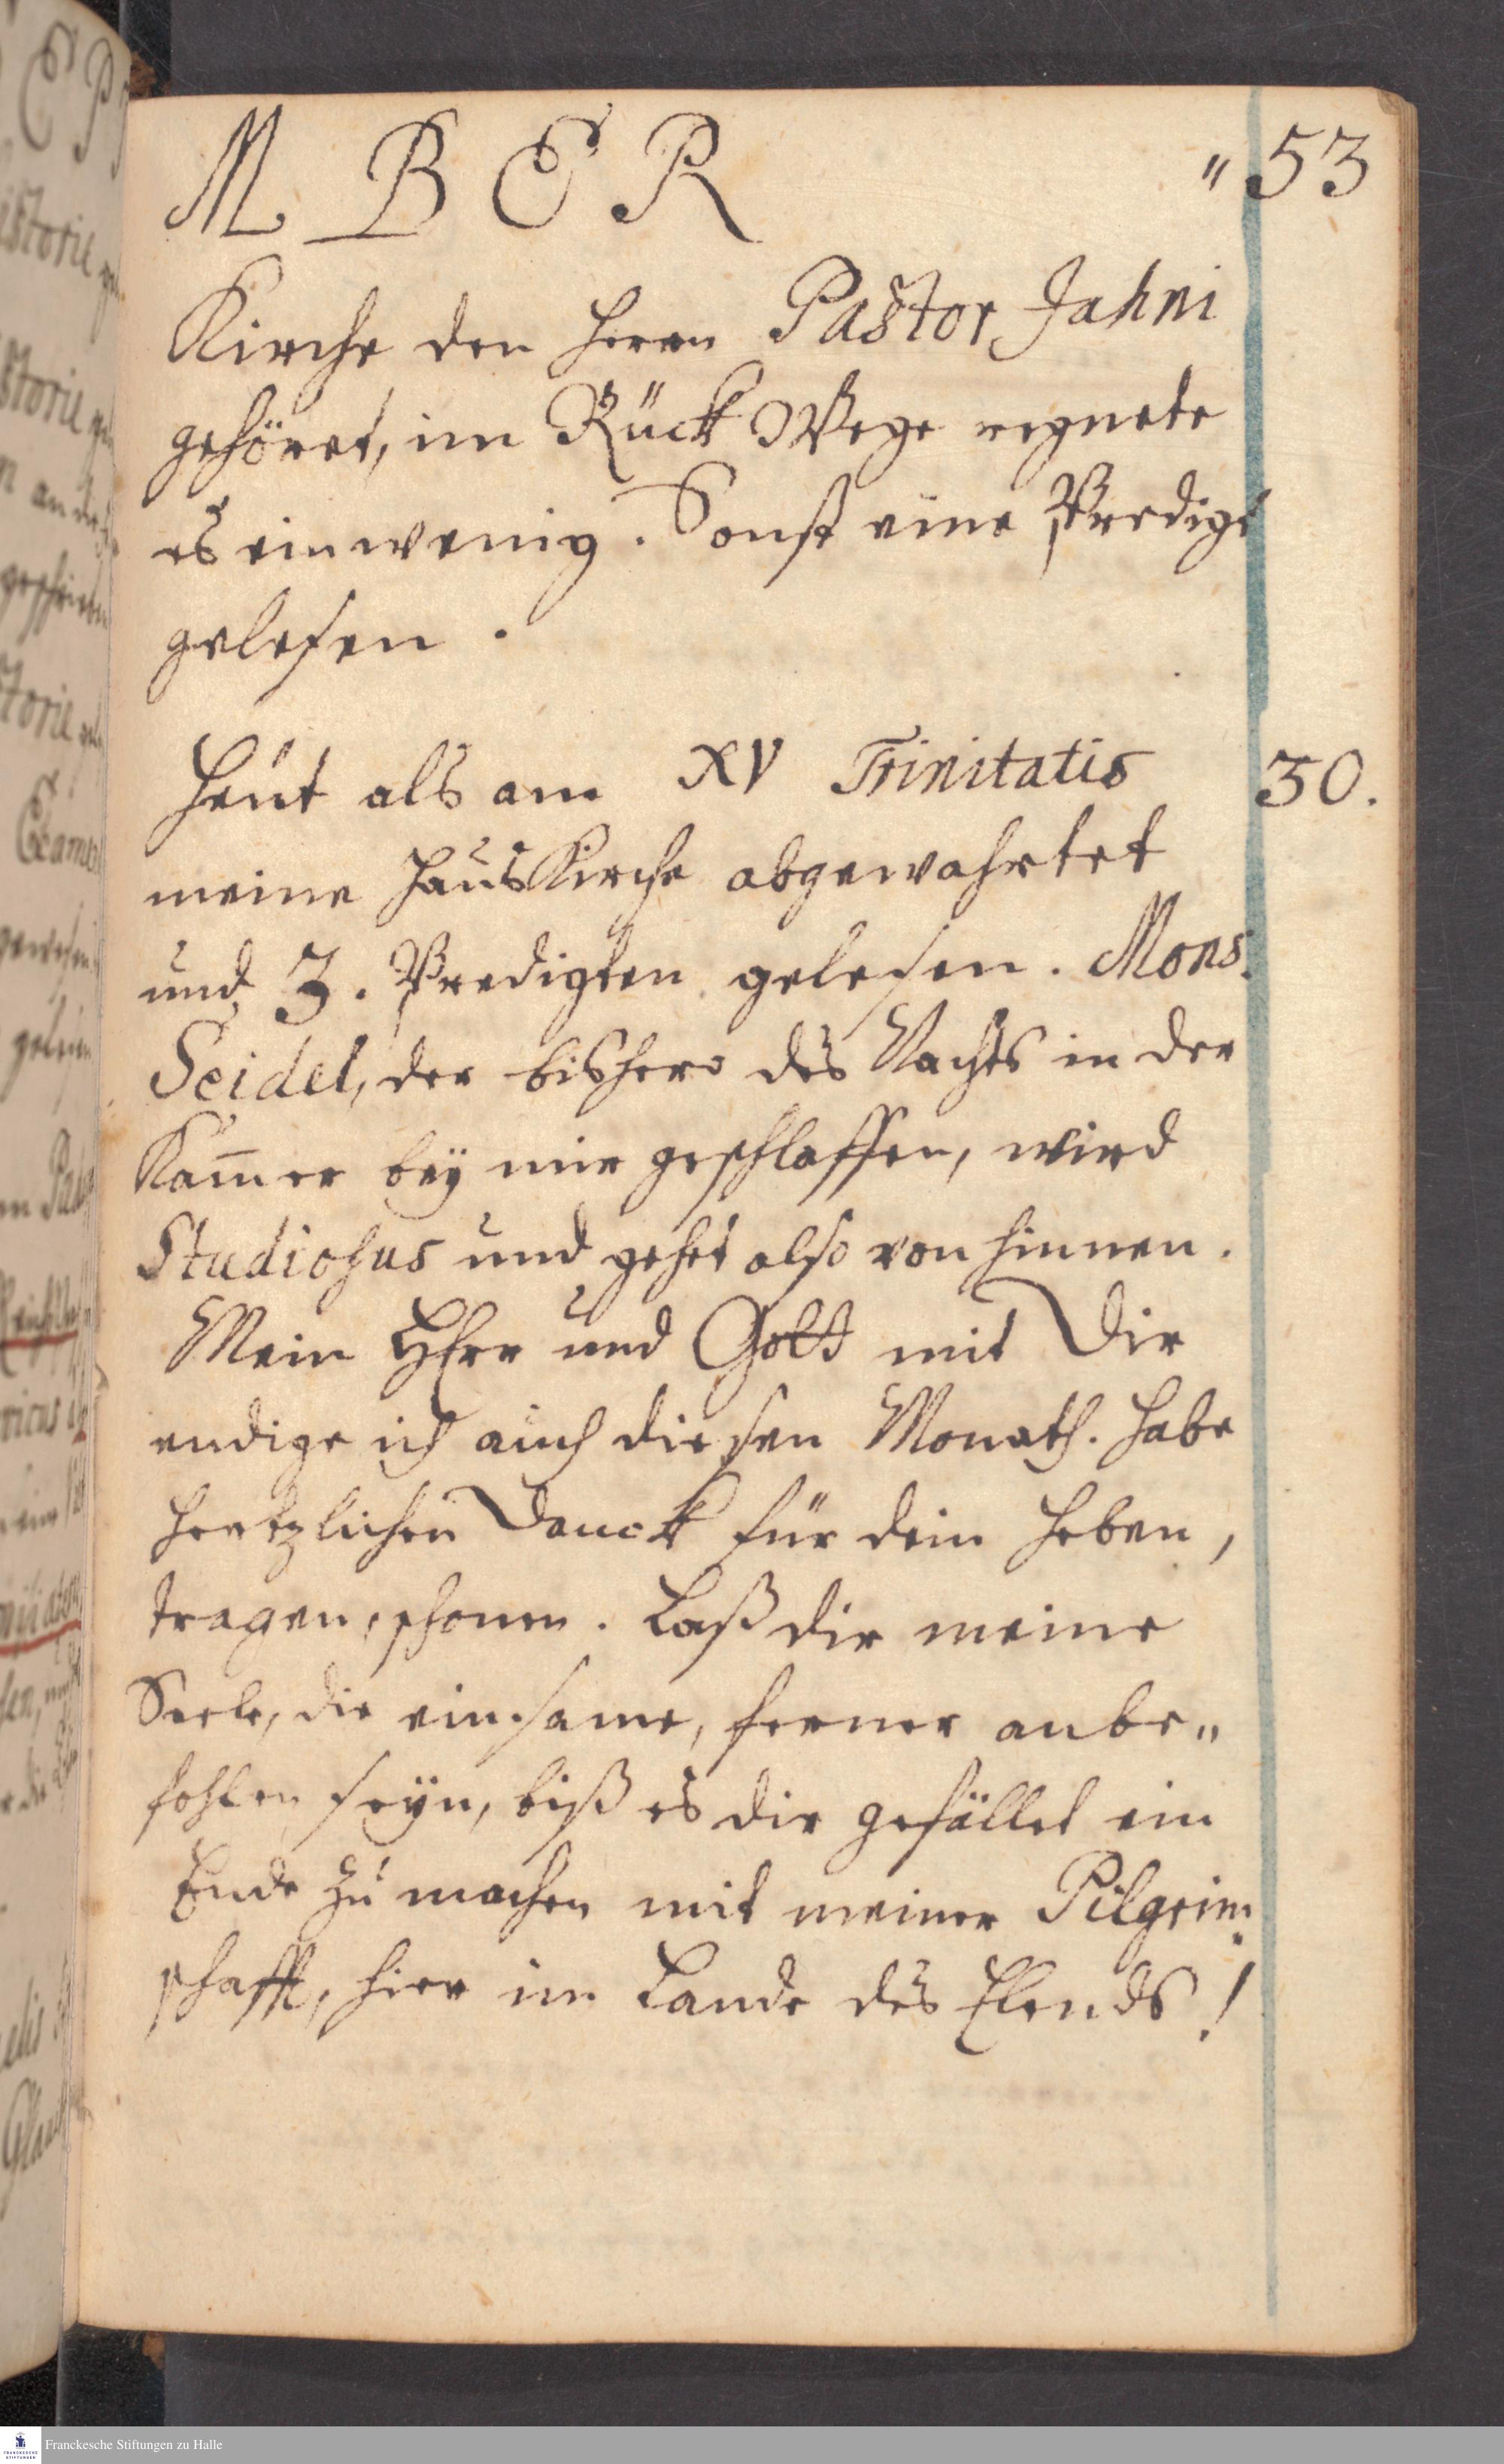 M B E R " 53
Kirche den Herrn Pastor Jahni
gehöret, im Rück Wege regnete
es ein wenig. Sonst eine Predigt
gelesen.
Heut als am XV Trinitatis 30.
meine HausKirche abgewahrtet
und 3. Predigten gelesen. Mons.
Seidel, der bishero des Nachts in der
Kam̅er bey mir geschlaffen, wird
Studiosus und gehet also von hinnen.
Mein HErr und Gott mit Dir
endige ich auch diesen Monath. Habe
hertzlichen Danck für dein heben,
tragen, schonen. Laß dir meine
Seele, die einsame, ferner anbe„
fohlen seyn, biß es dir gefället ein
Ende zu machen mit meiner Pilgrim
schafft, hier im Lande des Elends!
Franckesche Stiftungen zu Halle